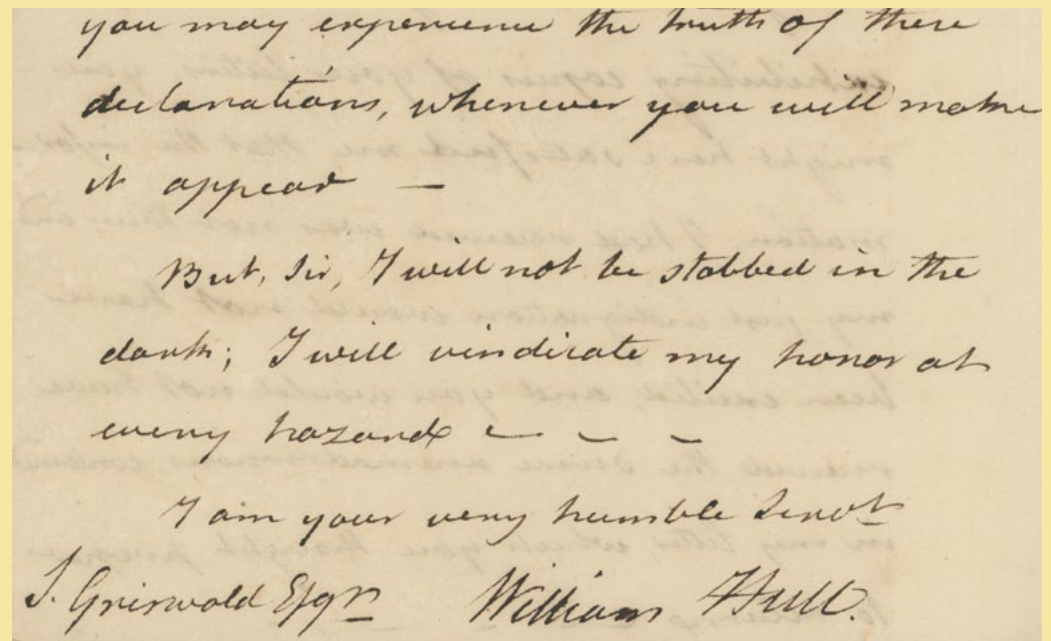 you may experience the truth of these
declarations, whenever you will make
it appear —
But, Sir, I will not be stabbed in the
dark; I will vindicate my honor at
every hazard — — —
I am your very humble Servt
S. Griswold Esqr William Hull.